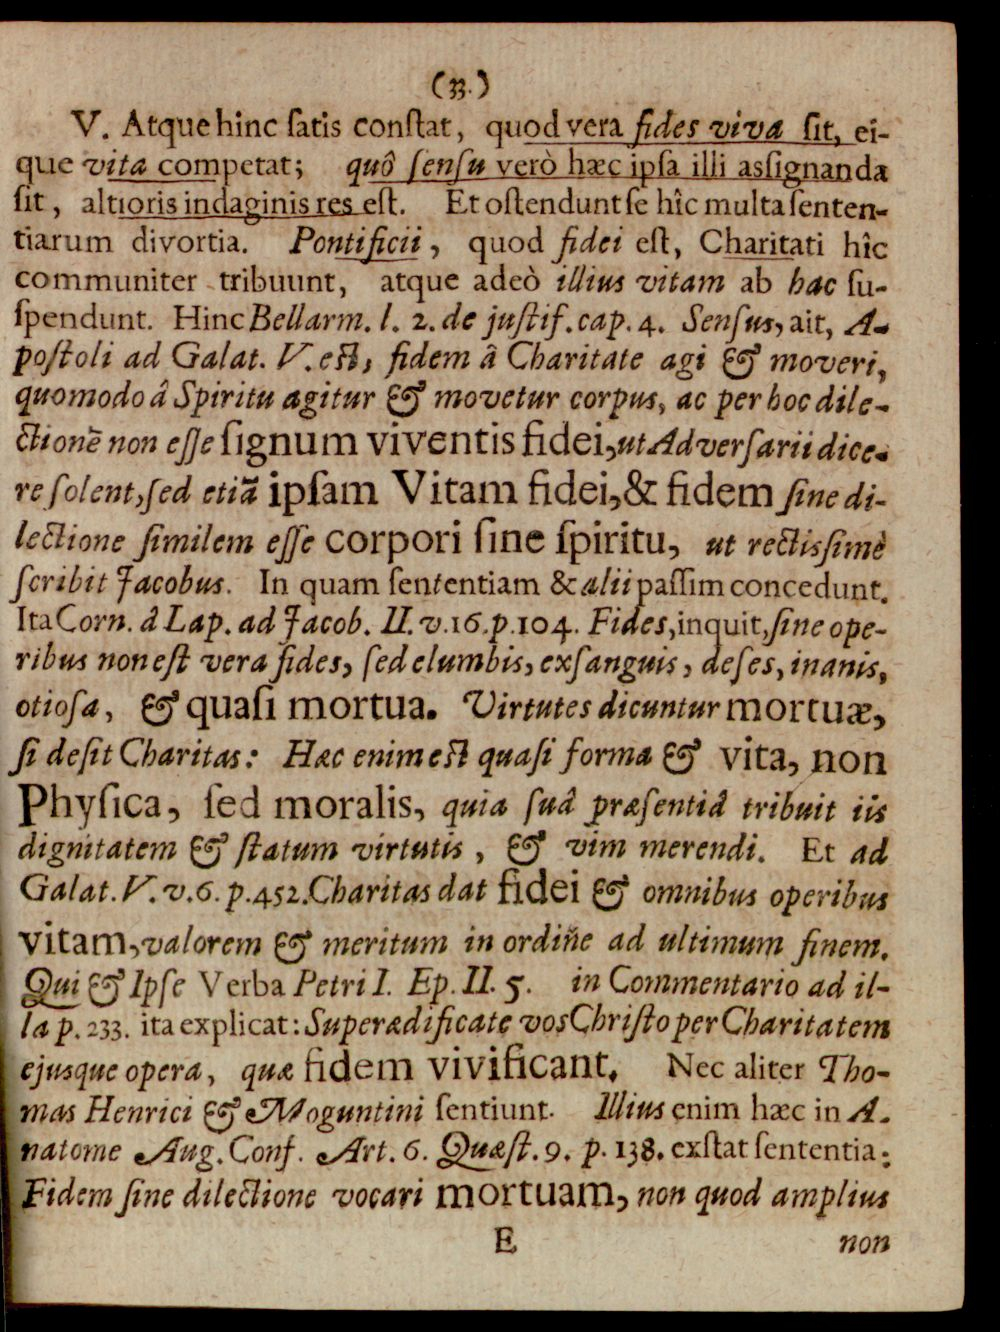 (33.)
V. Atque hînc ſatîs conſtat, quod vera fides viva ſit, ei-
que vita competat; quô ſenſu verò hæc ipſa illi aſsignanda
ſit, altioris indaginis res eſt. Et oſtendunt ſe hîc multa ſenten-
tiarum divortia. Pontificii, quod fidei eſt, Charitati hîc
communiter tribuunt, atque adeò illius vitam ab hac ſu-
ſpendunt. Hinc Bellarm. l. 2. de juſtif. cap. 4. Senſus, ait, A-
poſtoli ad Galat. V. eſt, fidem â Charitate agi & moveri,
quomodo â Spiritu agitur & movetur corpus, ac per hoc dile-
ctionē non eſſe ſignum viventis fidei, ut Adverſarii dice-
re ſolent, ſed etiā ipſam Vitam fidei, & fidem ſine di-
lectione ſimilem eſſe corpori ſine ſpiritu, ut rectiſsimè
ſcribit Jacobus. In quam ſententiam & alii paſſim concedunt.
Ita Corn. â Lap. ad Jacob. II. v. 16. p. 104. Fides, inquit, ſine ope-
ribus non eſt vera fides, ſed elumbis, exſanguis, deſes, inanis,
otioſa, & quaſi mortua. Virtutes dicuntur mortuæ,
ſi deſit Charitas: Hæc enim eſt quaſi forma & vita, non
Phyſica, ſed moralis, quia ſuâ præſentiâ tribuit iis
dignitatem & ſtatum virtutis, & vim merendi. Et ad
Galat. V. v. 6. p. 452. Charitas dat fidei & omnibus operibus
vitam, valorem & meritum in ordine ad ultimum finem.
Qui & Ipſe Verba Petri I. Ep. II. 5. in Commentario ad il-
la p. 233. ita explicat: Superædificate vos Chriſto per Charitatem
ejusque opera, quæ fidem vivificant. Nec aliter Tho-
mas Henrici & Moguntini ſentiunt. Illius enim hæc in A-
natome Aug. Conf. Art. 6. Quæſt. 9. p. 138. exſtat ſententia:
Fidem ſine dilectione vocari mortuam, non quod amplius
E non